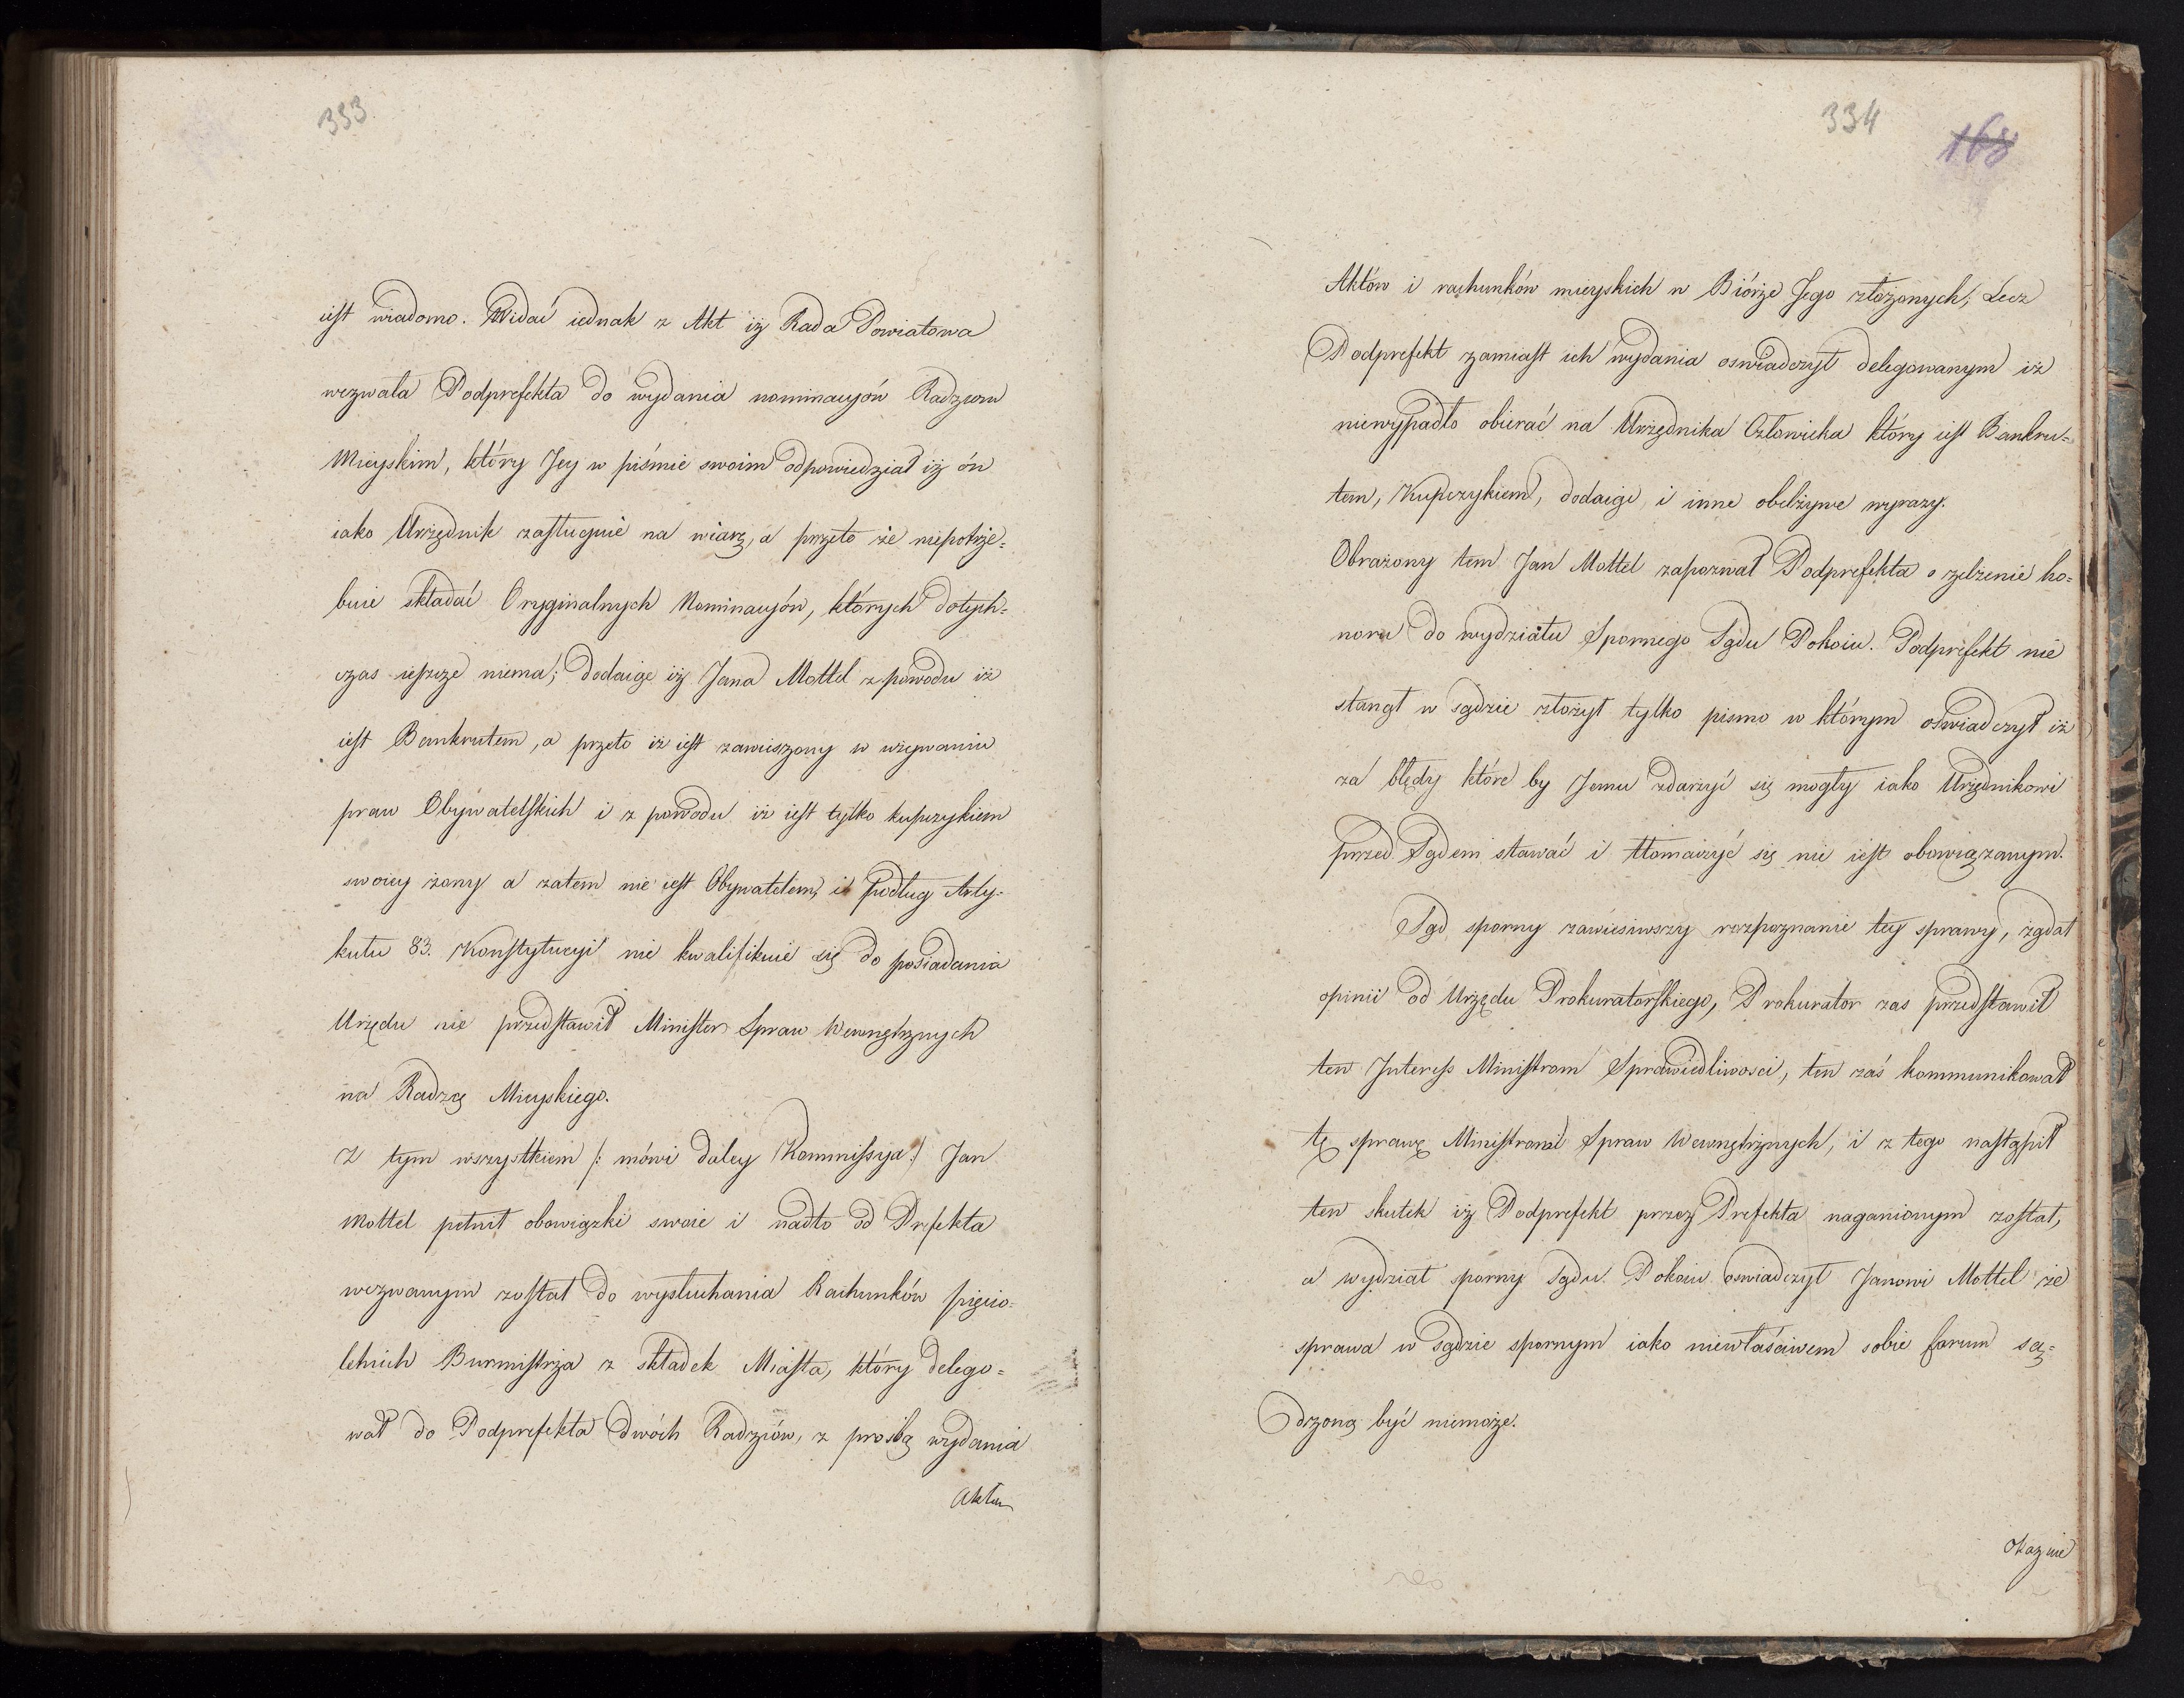 333
iest wiadomo. Widać iednak z Akt iż Rada Powiatowa
wezwała Podprefekta do wydania nominacyów Radzcom
Mieyskim, który Jey w piśmie swoim odpowiedział iż ón
iako Urzędnik zasługuie na wiarę, a przeto że niepotrze=
buie składać Oryginalnych Nominacyów, których dotych=
czas ieszcze niema; Dodaiąc iż Jana Mottel z powodu iż
iest Bankrutem, a przeto iż iest zawieszony w używaniu
praw Obywatelskich i z powodu iż iest tylko kupczykiem
swoiey żony a zatem nie iest Obywatelem, i podług Arty=
kułu 83. Konstytucyi nie kwalifikuie się do posiadania
Urzędu nie przedstawił Ministro Spraw Wewnętrznych
na Radzcę Mieyskiego.
Z tym wszystkiem /: mówi daley Kommissya :/ Jan
Mottel pełnił obowiązki swoie i nadto od Prefekta
wezwanym został do wysłuchania Rachunków pięcio=
letnich Burmistrza z składek Miasta, który delego=
wał do Podprefekta dwóch Radzców, z prośbą wydania
Aktów
334
168
Aktów i rachunków mieyskich w Biórze Jego złożonych; Lecz
Podprefekt zamiast ich wydania oswiadczył delegowanym iż
niewypadło obierać na Urzędnika Człowieka który iest Bankru=
tem, Kupczykiem, dodaiąc i inne obelżywe wyrazy.
Obrażony tem Jan Mottel zapozwał Podprefekta o zelżenie ho=
noru do wydziału Spornego Sądu Pokoiu. Podprefekt nie
stanął w sądzie złożył tylko pismo w którym oświadczył iż
za błędy które by Jemu zdarzyć się mogły iako Urzędnikowi
przed Sądem stawać i tłomaczyć się nie iest obowiązanym.
Sąd sporny zawiesiwszy rozpoznanie tey sprawy, żądał
opinii od Urzędu Prokuratorskiego, Prokurator zas przedstawił
ten Interess Ministrowi Sprawiedliwosci, ten zaś kommunikował
tę sprawę Ministrowi Spraw Wewnętrznych, i z tego nastąpił
ten skutek iż Podprefekt przez Prefekta naganionym został,
a wydział sporny Sądu Pokoiu oswiadczył Janowi Mottel że
sprawa w sądzie spornym iako niewłaściwem sobie forum są=
dzoną być niemoże.
Okaz uie